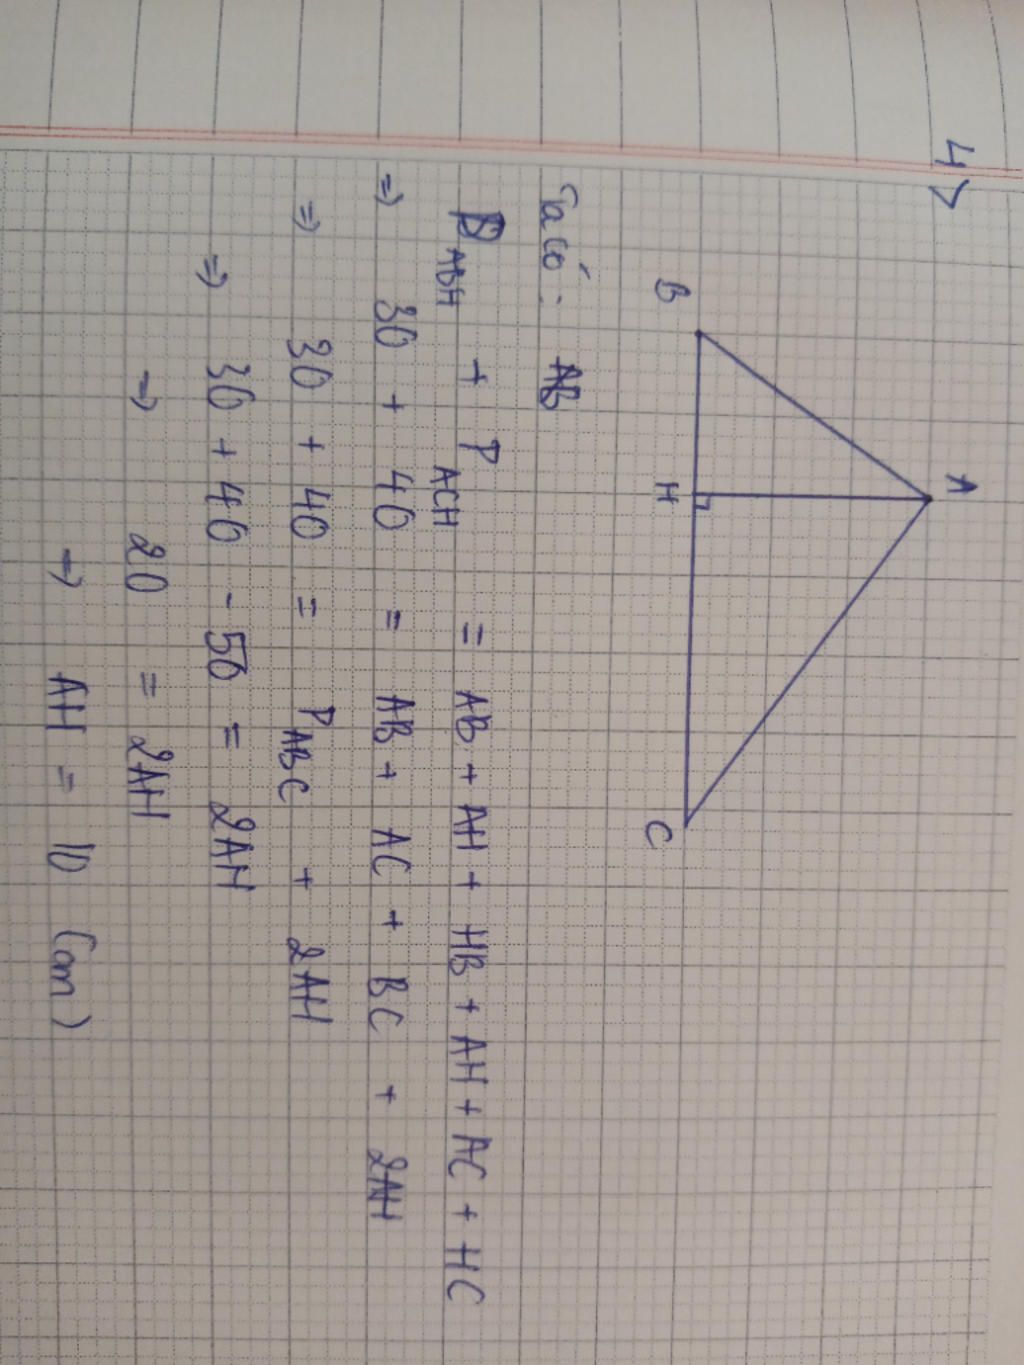 4>
A
B H C
Ta có: AB
P ABH + P ACH = AB + AH + HB + AH + AC + HC
=> 30 + 40 = AB + AC + BC + 2AH
=> 30 + 40 = P ABC + 2AH
=> 30 + 40 - 50 = 2AH
=> 20 = 2AH
=> AH = 10 (cm)